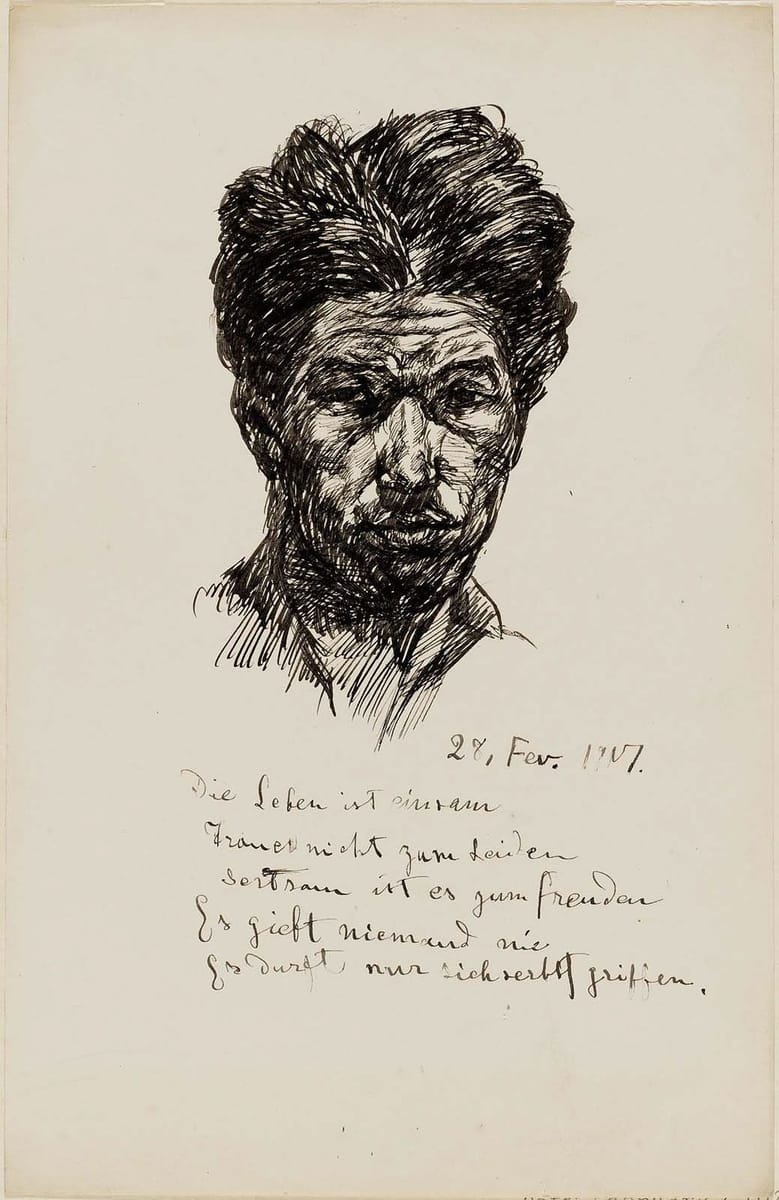 28, Fev. 1917.
Die Leben ist einsam
nicht zum Leiden
ist es zum freuden
Es giebt niemand nie
Es durft nur sich griffen.